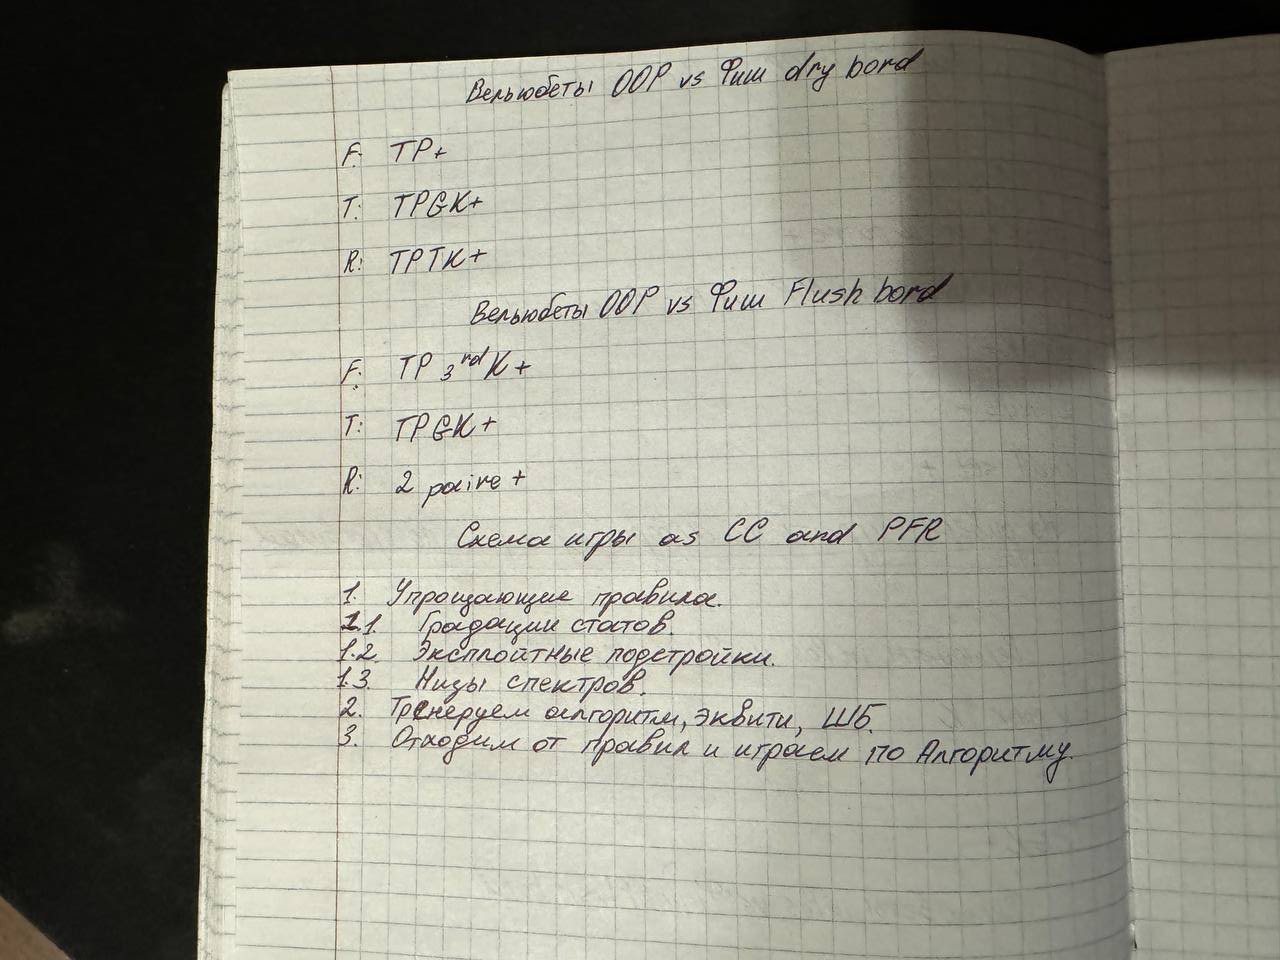 Вельюбеты OOP vs Фиш dry bord
F: TP+
T: TPGK+
R: TPTK+
Вельюбеты OOP vs Фиш Flush bord
F: TP 3rd K+
T: TPGK+
R: 2 paire +
Схема игры as CC and PFR
1. Упрощающие правила.
1.1. Градации статов.
1.2. Эксплойтные подстройки.
1.3. Низы спектров.
2. Тренеруем алгоритм, эквити, ШБ.
3. Отходим от правил и играем по Алгоритму.